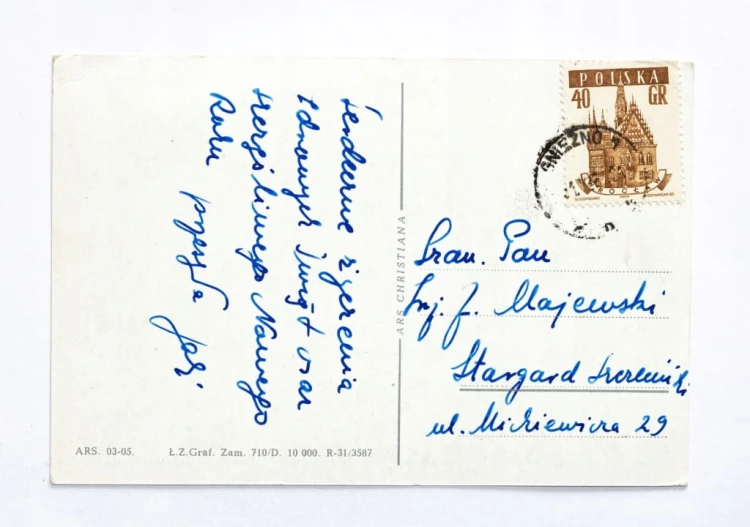 Serdeczne życzenia
zdrowych Świąt oraz
szczęśliwego Nowego
Roku przesyła
POLSKA
40 GR
WROCŁAW
GNIEZNO 1
ARS CHRISTIANA
Szan. Pan
Inż. J. Majewski
Stargard Szczeciński
ul. Mickiewicza 29
ARS. 03-05. Ł.Z.Graf. Zam. 710/D. 10 000. R-31/3587